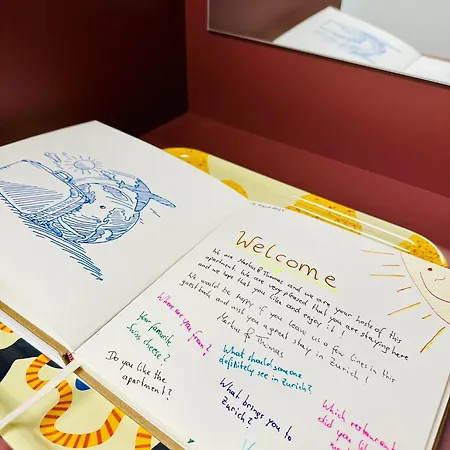 Welcome
We are Markus & Thomas and we are your hosts of this
apartment. We are very pleased that you are staying here
and we hope that you like and enjoy it!
We would be happy if you leave us a few lines in this
guestbook and wish you a great stay in Zurich!
Markus & Thomas
Where are you from?
Your favorite
Swiss cheese?
Do you like the
apartment?
What should someone
definitely see in Zurich?
What brings you to
Zurich?
Which restaurant
did you like